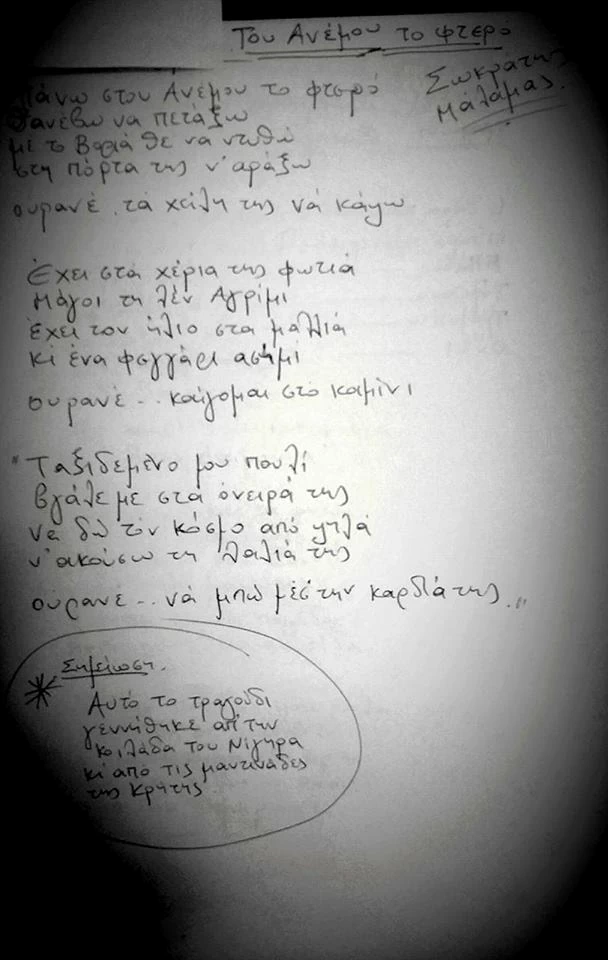 Του Ανέμου το φτερό
Σωκράτης
Μάλαμας.
Πάνω στου Ανέμου το φτερό
θ'ανέβω να πετάξω
με το Βοριά θε να ντυθώ
στη πόρτα της ν'αράξω
ουρανέ.. τα χείλη της νά κάψω
Έχει στα χέρια της φωτιά
Μάγοι τη λέν Αγρίμι
έχει τον ήλιο στα μαλλιά
κι ένα φεγγάρι ασήμι
ουρανέ.. καίγομαι στο καμίνι
"Ταξιδεμένο μου πουλί
βγάλε με στα όνειρά της
να δω τον κόσμο από ψηλά
ν'ακούσω τη λαλιά της
ουρανέ.. νά μπω μέσ'την καρδιά της."
Σημείωση.
* Αυτό το τραγούδι
γεννήθηκε απ'την
κοιλάδα του Νίγηρα
κι από τις μαντινάδες
της Κρήτης.